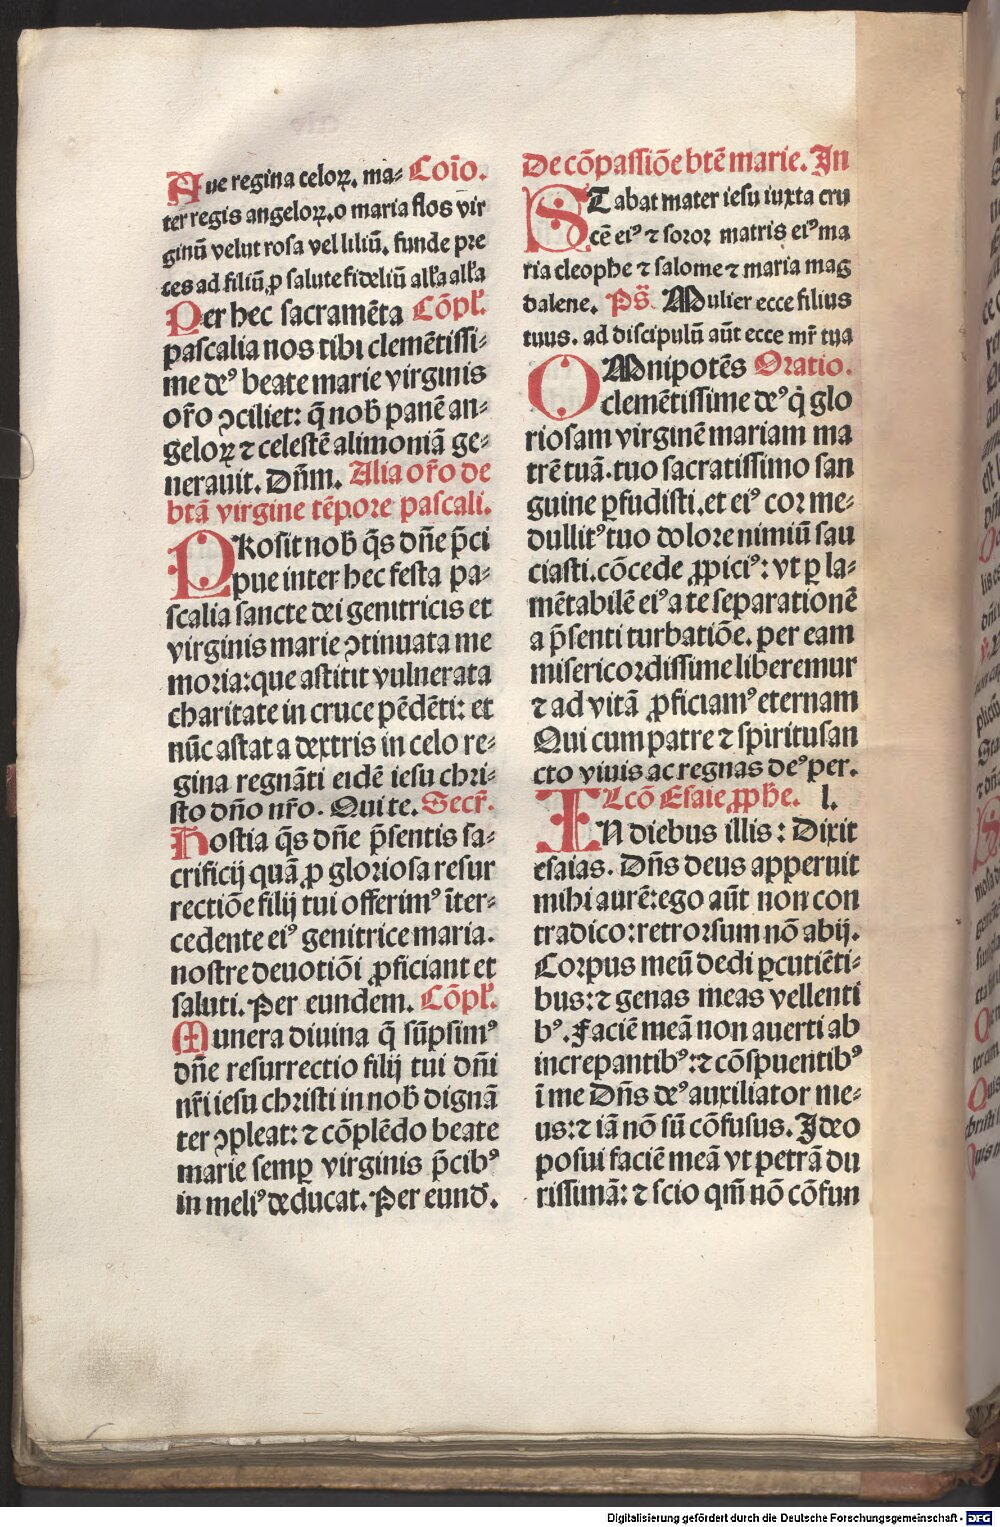 Aue regina celoꝝ. ma⸗ Coīo.
ter regis angeloꝝ. o maria flos vir
ginū velut rosa vel liliū. funde pre
ces ad filiū ꝓ salute fideliū allʼa allʼa
Per hec sacramēta Cōplʼ.
pascalia nos tibi clemētissi⸗
me deꝰ beate marie virginis
orō ꝯciliet: q̄ nob̄ panē an⸗
geloꝝ ⁊ celestē alimoniā ge⸗
nerauit. Dn̄m. Alia orō de
btā virgine tēpore pascali.
PRosit nob̄ q̄s dn̄e p̄ci
pue inter hec festa pa⸗
scalia sancte dei genitricis et
virginis marie ꝯtinuata me
moria: que astitit vulnerata
charitate in cruce pēdēti: et
nūc astat a dextris in celo re⸗
gina regnāti eidē iesu chri⸗
sto dn̄o nr̄o. Qui te. Secr̄.
Hostia q̄s dn̄e p̄sentis sa⸗
crificij quā ꝓ gloriosa resur
rectiōe filij tui offerimꝰ īter⸗
cedente eiꝰ genitrice maria.
nostre deuotiōi ꝓficiant et
saluti. Per eundem. Cōplʼ.
Munera diuina q̄ sūpsimꝰ
dn̄e resurrectio filij tui dn̄i
nr̄i iesu christi in nob̄ dignā
ter ꝯpleat: ⁊ cōplēdo beate
marie semꝑ virginis p̄cibꝰ
in meliꝰ deducat. Per eund̄.
De cōpassiōe btē marie. In
STabat mater iesu iuxta cru
cē eiꝰ ⁊ soror matris eiꝰ ma
ria cleophe ⁊ salome ⁊ maria mag
dalene. Ps̄. Mulier ecce filius
tuus. ad discipulū aūt ecce mr̄ tua
OMnipotēs Oratio.
clemētissime deꝰ q̇ glo
riosam virginē mariam ma
trē tuā. tuo sacratissimo san
guine ꝑfudisti. et eiꝰ cor me⸗
dullitꝰ tuo dolore nimiū sau
ciasti. cōcede ꝓpiciꝰ: vt ꝑ la⸗
mētabilē eiꝰ a te separationē
a p̄senti turbatiōe. per eam
misericordissime liberemur
⁊ ad vitā ꝓficiamꝰ eternam
Qui cum patre ⁊ spiritusan
cto viuis ac regnas deꝰ per.
Lcō Esaie ꝓph̄e. l.
IN diebus illis: Dixit
esaias. Dn̄s deus apperuit
mihi aurē: ego aūt non con
tradico: retrorsum nō abij.
Corpus meū dedi ꝑcutiēti⸗
bus: ⁊ genas meas vellenti
bꝰ. Faciē meā non auerti ab
increpantibꝰ: ⁊ cōspuentibꝰ
ī me Dn̄s deꝰ auxiliator me⸗
us: ⁊ iā nō sū cōfusus. Ideo
posui faciē meā vt petrā du
rissimā: ⁊ scio qm̄ nō cōfun
Digitalisierung gefördert durch die Deutsche Forschungsgemeinschaft - DFG